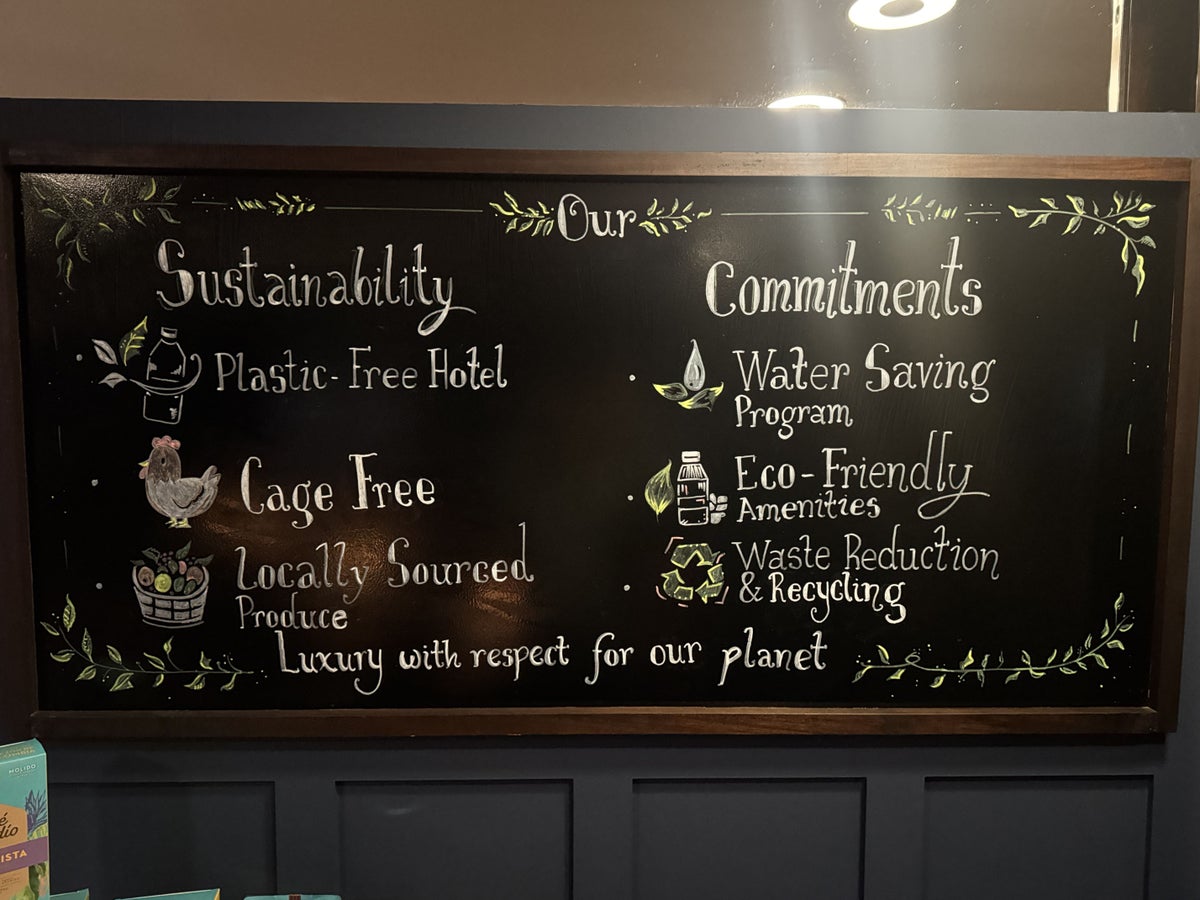 Our
Sustainability
Commitments
Plastic-Free Hotel
Cage Free
Locally Sourced
Produce
Water Saving
Program
Eco-Friendly
Amenities
Waste Reduction
& Recycling
Luxury with respect for our planet
MOLIDO